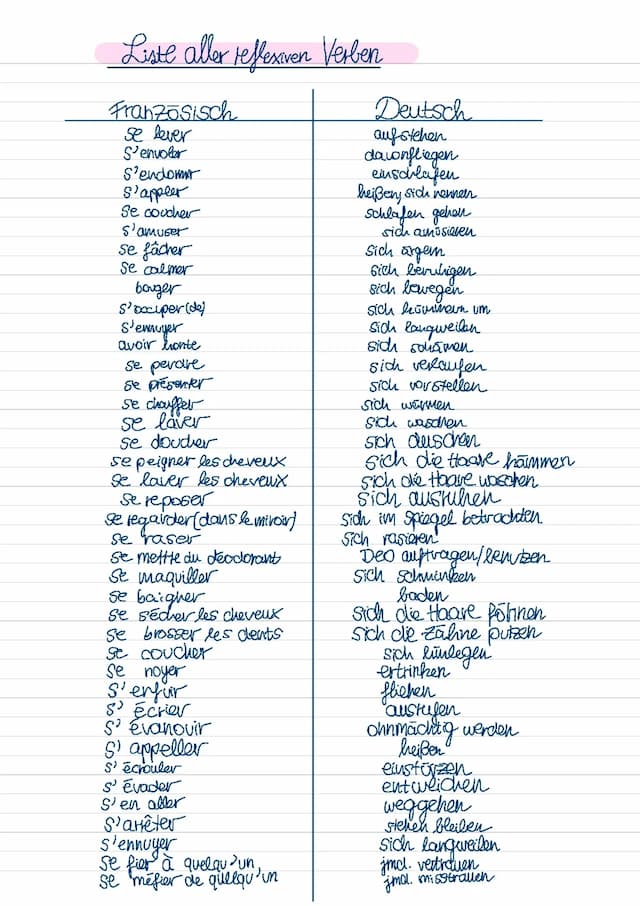 Liste aller reflexiven Verben
Französisch Deutsch
se lever aufstehen
s'envoler davonfliegen
s'endormir einschlafen
s'appler heißen, sich nennen
se coucher schlafen gehen
s'amuser sich amüsieren
se fâcher sich ärgern
se calmer sich beruhigen
bouger sich bewegen
s'occuper (de) sich kümmern um
s'ennuyer sich langweilen
avoir honte sich schämen
se perdre sich verlaufen
se présenter sich vorstellen
se chauffer sich wärmen
se laver sich waschen
se doucher sich duschen
se peigner les cheveux sich die Haare kämmen
se laver les cheveux sich die Haare waschen
se reposer sich ausruhen
se regarder (dans le miroir) sich im Spiegel betrachten
se raser sich rasieren
se mettre du déodorant Deo auftragen/benutzen
se maquiller sich schminken
se baigner baden
se sécher les cheveux sich die Haare föhnen
se brosser les dents sich die Zähne putzen
se coucher sich hinlegen
se noyer ertrinken
s'enfuir fliehen
s'écrier ausrufen
s'évanouir ohnmächtig werden
s'appeller heißen
s'écrouler einstürzen
s'évader entweichen
s'en aller weggehen
s'arrêter stehen bleiben
s'ennuyer sich langweilen
se fier à quelqu'un jmd. vertrauen
se méfier de quelqu'un jmd. misstrauen